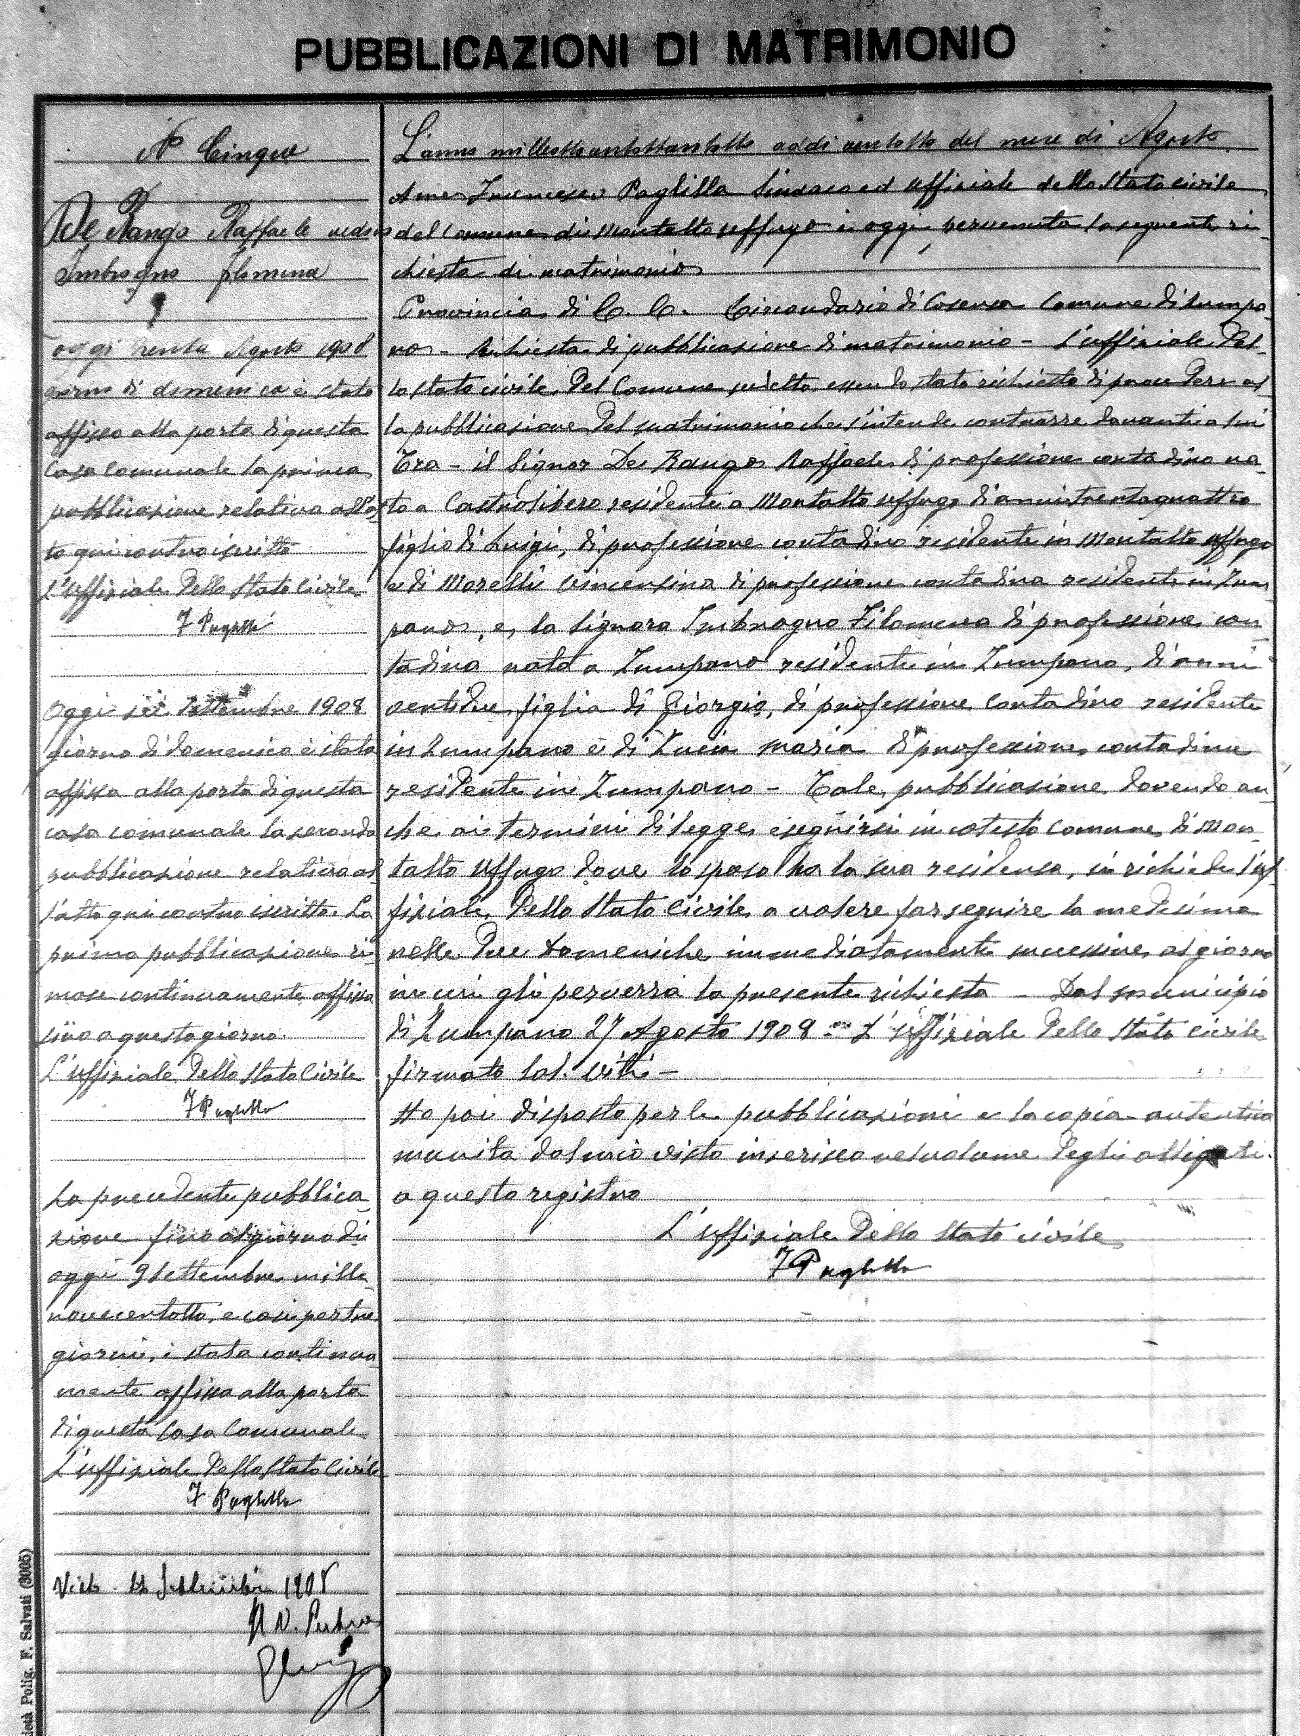 PUBBLICAZIONI DI MATRIMONIO
N° Cinque
De Rango Raffaele
Imbrogno Filomena
oggi trenta Agosto 1908
giorno di domenica è stata
affissa alla porta di questa
Casa Comunale la prima
pubblicazione relativa all'at
to qui contro iscritto
L'uffiziale dello Stato Civile
F Puglilla
Oggi sei Settembre 1908
giorno di domenica è stata
affissa alla porta di questa
casa comunale la seconda
pubblicazione relativa al
l'atto qui contro iscritto. La
prima pubblicazione ri
mase continuamente affissa
sino a questo giorno.
L'uffiziale dello Stato Civile
F Puglilla
La precedente pubblica
zione fino al giorno di
oggi 9 Settembre mille
novecentotto, e così per tre
giorni, è stata continua
mente affissa alla porta
di questa Casa Comunale
L'uffiziale dello Stato Civile
F Puglilla
Visto Settembre 1908
L'anno addi ventotto del mese di Agosto.
A me Francesco Puglilla Sindaco ed uffiziale dello Stato Civile
del Comune di Montalto uffugo è oggi pervenuta la seguente ri-
chiesta di matrimonio
Provincia di C. C. Circondario di Cosenza Comune di Zumpa-
no - Richiesta di pubblicazione di matrimonio - L'uffiziale del-
lo stato civile del Comune suddetto essendo stato richiesto di procedere al
la pubblicazione del matrimonio che s'intende contrarre davanti a lui
Tra - il Signor De Rango Raffaele di professione contadino na-
to a Castrolibero residente a Montalto uffugo d'anni trentaquattro
figlio di Luigi, di professione contadino residente in Montalto uffugo
e di Morelli Vincenzina di professione contadina residente in Zum
pano, e la Signora Imbrogno Filomena di professione con-
tadina nata a Zumpano residente in Zumpano, di anni
ventidue figlia di Giorgio, di professione contadino residente
in Zumpano e di Lucia Maria di professione contadina
residente in Zumpano - Tale pubblicazione dovendo an-
che ai termini di legge eseguirsi in cotesto Comune di Mon
talto Uffugo dove lo sposo ha la sua residenza, si richiede l'uf
fiziale dello Stato Civile a volere far seguire la medesima
nelle due domeniche immediatamente successive al giorno
in cui gli perverrà la presente richiesta - Dal municipio
di Zumpano 27 Agosto 1908 - L'uffiziale dello Stato Civile
firmato Sal. Viti -
Ho poi disposto per le pubblicazioni e la copia autentica
munita dal mio visto inserisco nel volume degli allegati
a questo registro
L'uffiziale dello Stato civile
F Puglilla
Polig. F. Salvati (3005)